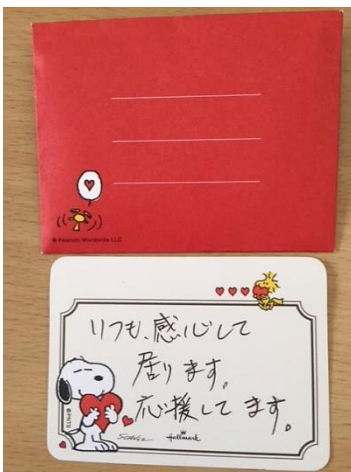 © Peanuts Worldwide LLC
いつも、感心して
居ります。
応援してます。
©PNTS
SCHULZ
Hallmark